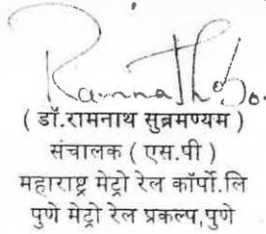 ( डॉ.रामनाथ सुब्रमण्यम )
संचालक ( एस.पी )
महाराष्ट्र मेट्रो रेल कॉर्पो.लि
पुणे मेट्रो रेल प्रकल्प,पुणे